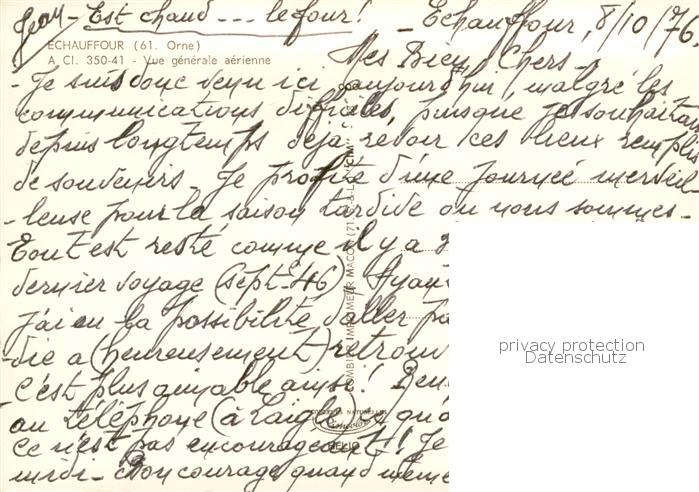 Est chaud --- le four! - Echauffour, 8/10/76.
ECHAUFFOUR (61. Orne)
A Cl. 350-41 - Vue générale aérienne
Mes Bien Chers -
- Je suis donc venu ici aujourd'hui, malgré les
communications difficiles, puisque je souhaitais
depuis longtemps déjà revoir ces lieux remplis
de souvenirs - Je profite d'une journée merveil
- leuse pour la saison tardive où nous sommes -
Tout est resté comme il y a
dernier voyage (sept. 46).
j'ai eu la possibilité d'aller
- die a (heureusement) retrouv
c'est plus aimable ainsi!
au téléphone (à Laigle)
ce n'est pas encourageant! Je
midi - Bon courage quand même
COMBIER IMPRIMEUR MACON
privacy protection
Datenschutz